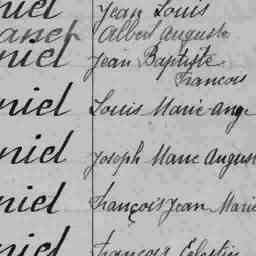 niel Jean Louis
Albert Auguste
niel Jean Baptiste
Francois
niel Louis Marie Ange
niel Joseph Marie August
niel François Jean Marie
niel François Celestin